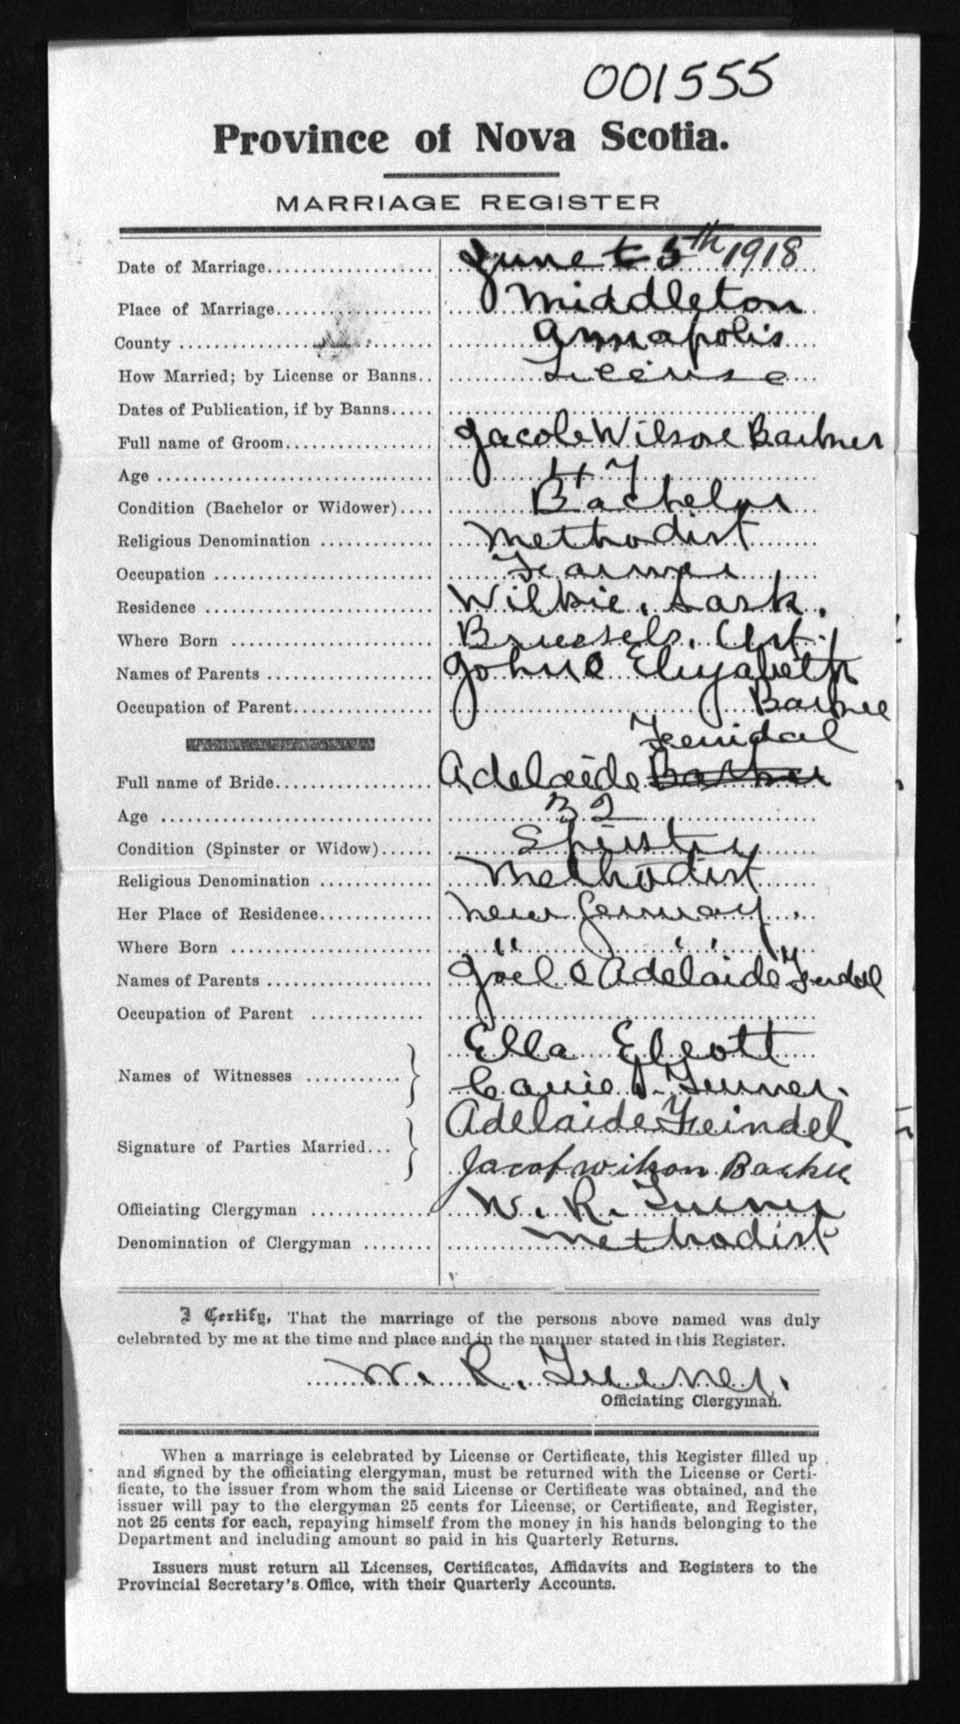 001555
Province of Nova Scotia.
MARRIAGE REGISTER
Date of Marriage.................... June 5th 1918
Place of Marriage................... Middleton
County .............................. Annapolis
How Married; by License or Banns.. License
Dates of Publication, if by Banns.....
Full name of Groom.................. Jacob Wilson Barker
Age ................................. 47
Condition (Bachelor or Widower).... Bachelor
Religious Denomination ............. Methodist
Occupation .......................... Farmer
Residence ........................... Wilkie, Sask.
Where Born ......................... Brussels, Ont.
Names of Parents ................... John & Elizabeth
Occupation of Parent................ Barker
Feindel
Full name of Bride................... Adelaide Barker
Age ................................. 32
Condition (Spinster or Widow)...... Spinster
Religious Denomination ............. Methodist
Her Place of Residence.............. New Germany
Where Born ......................... " "
Names of Parents ................... Joel & Adelaide Feindel
Occupation of Parent ..............
Names of Witnesses ........... } Ella Eliott
Turner.
Signature of Parties Married... } Adelaide Feindel
Jacob Wilson Barker
Officiating Clergyman .............. W. R. Turner
Denomination of Clergyman ........ Methodist
I Certify, That the marriage of the persons above named was duly
celebrated by me at the time and place and in the manner stated in this Register.
W. R. Turner.
Officiating Clergyman.
When a marriage is celebrated by License or Certificate, this Register filled up
and signed by the officiating clergyman, must be returned with the License or Certi-
ficate, to the issuer from whom the said License or Certificate was obtained, and the
issuer will pay to the clergyman 25 cents for License, or Certificate, and Register,
not 25 cents for each, repaying himself from the money in his hands belonging to the
Department and including amount so paid in his Quarterly Returns.
Issuers must return all Licenses, Certificates, Affidavits and Registers to the
Provincial Secretary's Office, with their Quarterly Accounts.